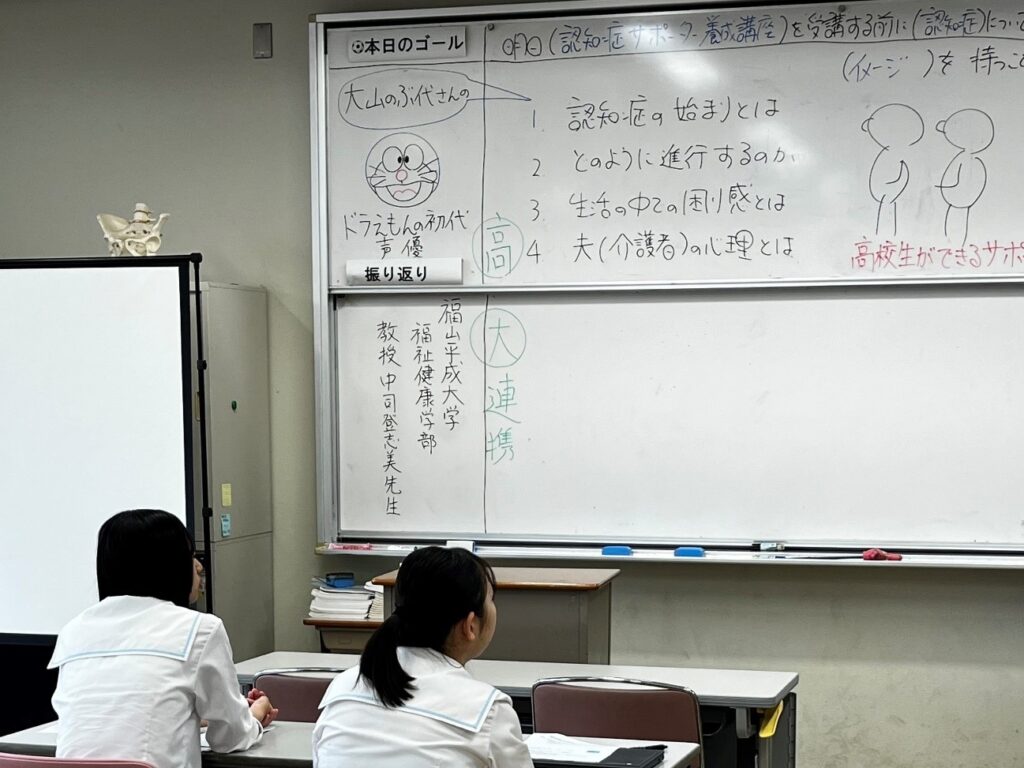 ⚽本日のゴール
明日(認知症サポーター養成講座)を受講する前に(認知症)につい
(イメージ)を持つこ
大山のぶ代さんの
ドラえもんの初代
声優
振り返り
1. 認知症の始まりとは
2. どのように進行するのか
3. 生活の中での困り感とは
4 夫(介護者)の心理とは
高校生ができるサポ
高大連携
福山平成大学
福祉健康学部
教授 中司登志美先生